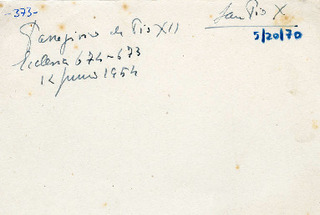 -373-
San Pio X
5/20/70
Panegirico de Pio XII
Ecclesia 674-673
12 Junio 1954